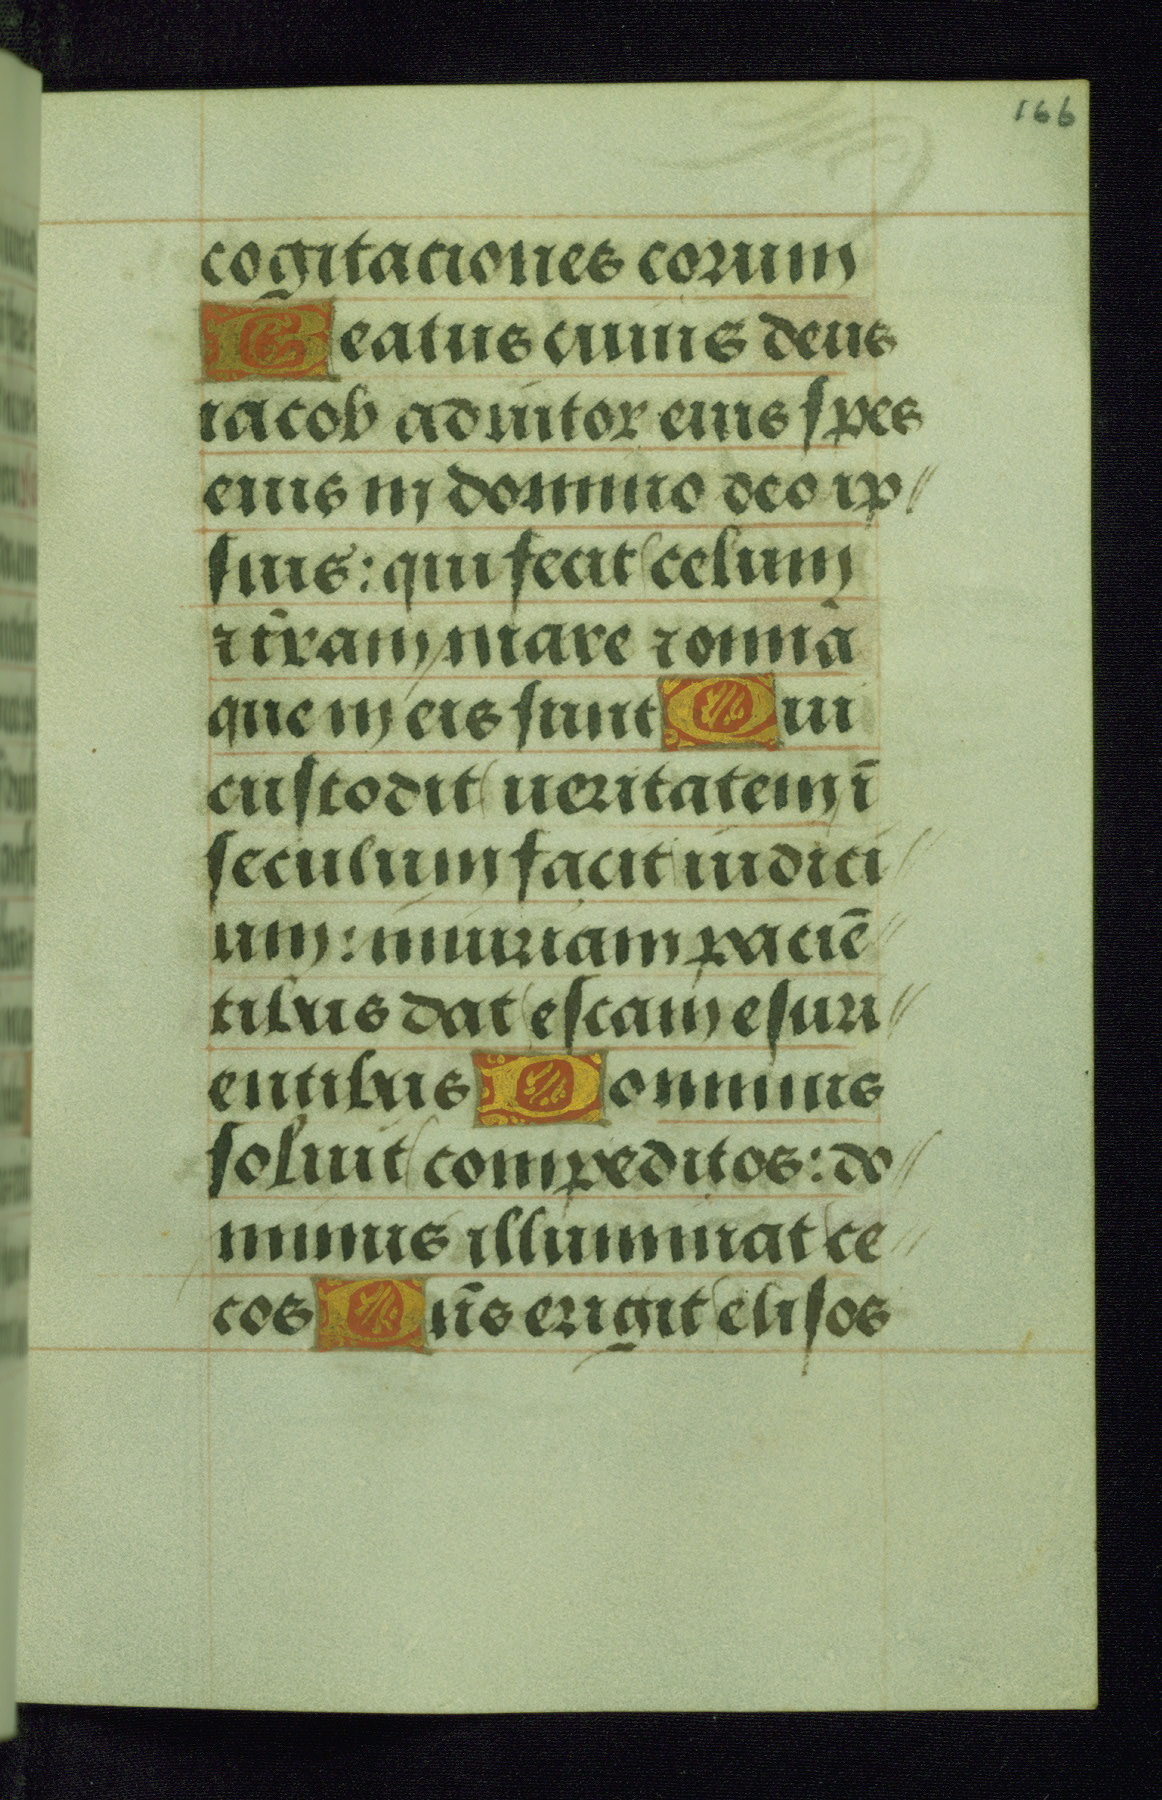 166
cogitationes eorum
Beatus cuius deus
iacob adiutor eius spes
eius in domino deo ip//
sius: qui fecit celum
⁊ t̄ram mare ⁊ omniā
que in eis sunt Qui
custodit ueritatem ī
seculum facit iudici//
um: iniuriam paciē//
tibus dat escam esuri//
entibus Dominus
soluit compeditos: do//
minus illuminat ce//
cos Dn̄s erigit elisos